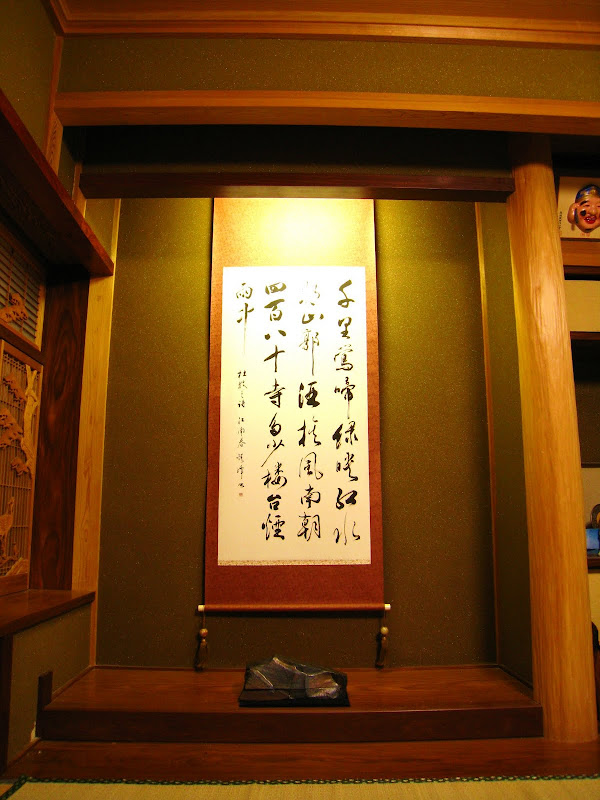 千里鶯啼緑映紅水
村山郭酒旗風南朝
四百八十寺多少楼台煙
雨中
杜牧之詩 江南春